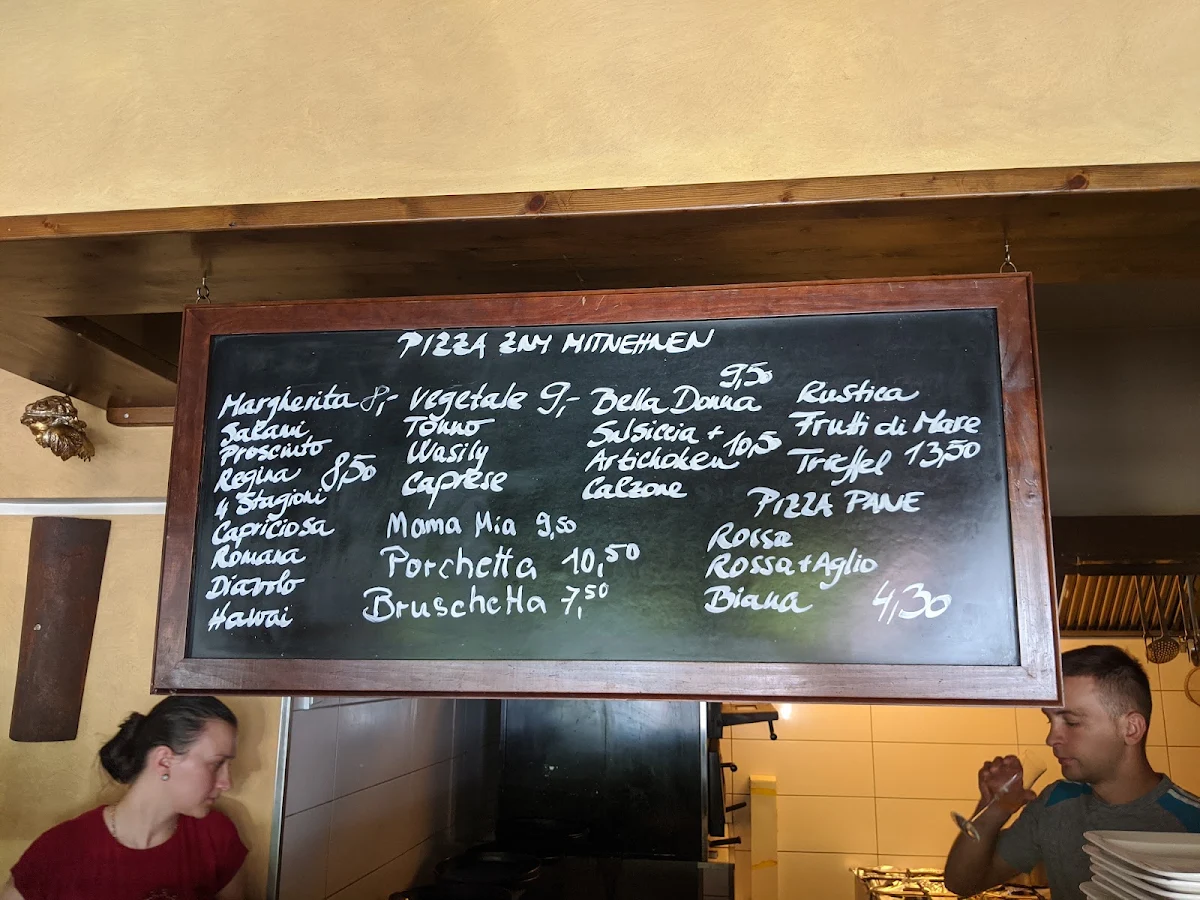 PIZZA ZUM MITNEHMEN
Margherita 8,-
Salami
Prosciuto
Regina 8,50
4 Stagioni
Capriciosa
Romana
Diavolo
Hawai
Vegetale 9,-
Tonno
Wasily
Caprese
Mama Mia 9,50
Porchetta 10,50
Bruschetta 7,50
9,50
Bella Donna
Salsiccia +
Artichoken 10,50
Calzone
Rustica
Frutti di Mare
Trüffel 13,50
PIZZA PANE
Rossa
Rossa+Aglio
Biana 4,30